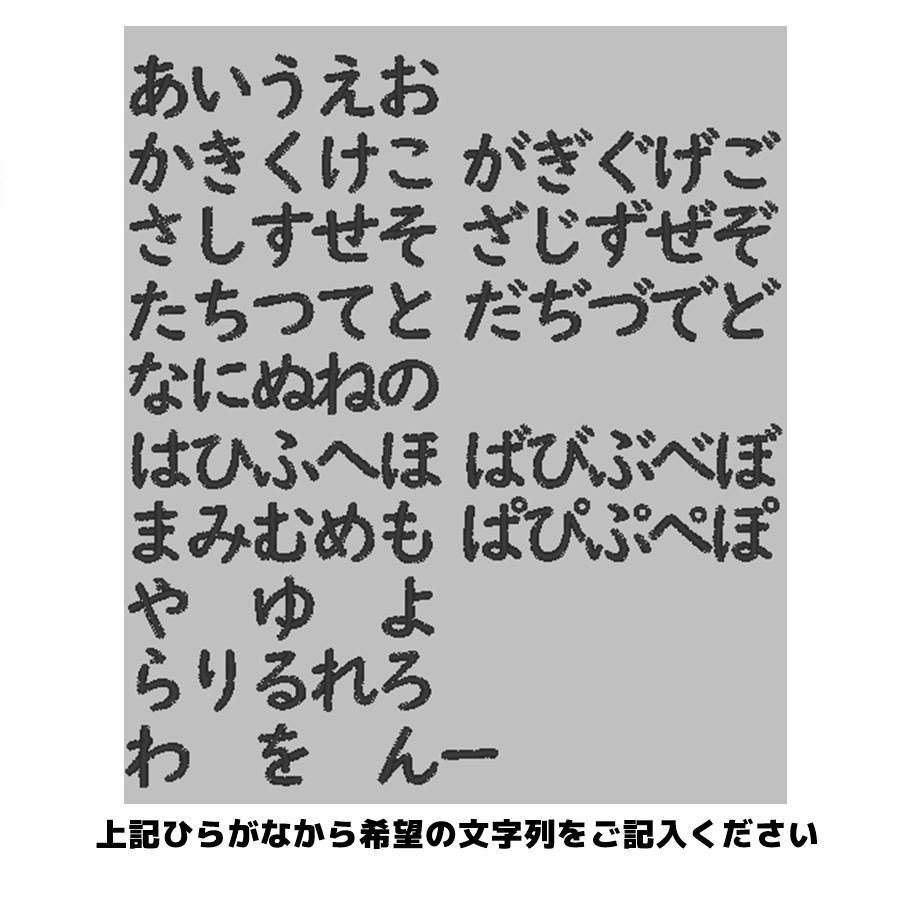 あいうえお
かきくけこ がぎぐげご
さしすせそ ざじずぜぞ
たちつてと だぢづでど
なにぬねの
はひふへほ ばびぶべぼ
まみむめも ぱぴぷぺぽ
や ゆ よ
らりるれろ
わ を んー
上記ひらがなから希望の文字列をご記入ください